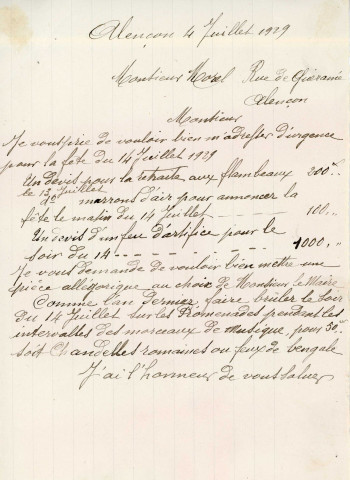 Alençon 4 Juillet 1929
Monsieur Morel Rue de
Alençon
Monsieur
Je vous prie de vouloir bien m'adresser d'urgence
pour la fête du 14 Juillet 1929
Un devis pour la retraite aux flambeaux 200"
le 13 Juillet
do marrons d'air pour annoncer la
fête le matin du 14 Juillet - - - - - - 100,"
Un devis d'un feu d'artifice pour le
soir du 14 - - - - - - - 4000,"
Je vous demande de vouloir bien mettre une
pièce allégorique au choix de Monsieur Le Maire
Comme l'an dernier, faire brûler le soir
du 14 Juillet sur les Promenades pendant les
intervalles des morceaux de musique, pour 50"
soit Chandelles romaines ou feux de bengale
J'ai l'honneur de vous saluer